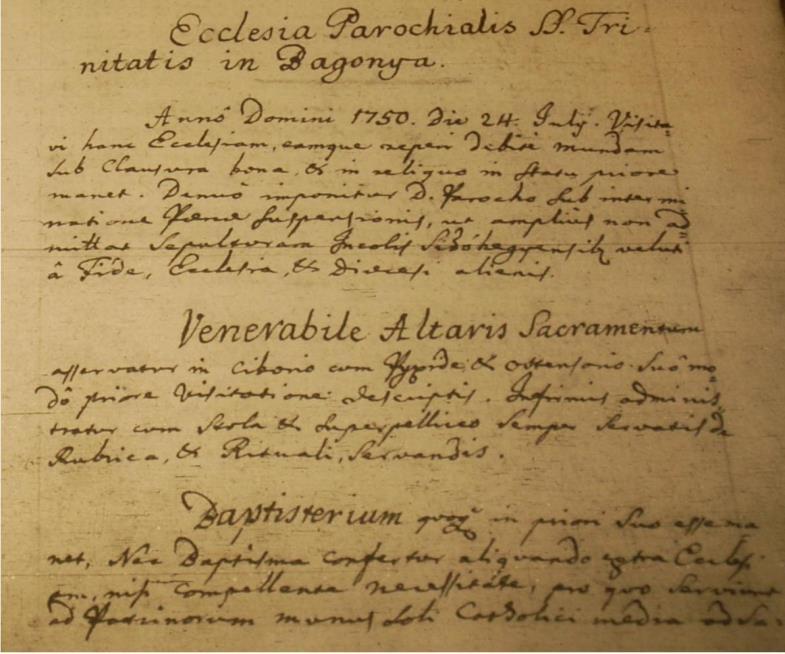 Ecclesia Parochialis SS. Tri-
nitatis in Bagonya.
Annô Domini 1750. Die 24. July. Visita-
vi hanc Ecclesiam, eamque reperi debite mundam
sub Clausura bona, & in reliquo in statu priore
manet. Denuô imponitur D. Parocho sub intermi-
natione Poenae suspensionis, ut amplius non ad-
mittat Sepulturam Incolis veluti
â Fide, Ecclesia, & Dioecesi alienis.
Venerabile Altaris Sacramentum
asservatur in Ciborio cum Pyxide & ostensorio suô mo-
dô priore Visitatione descriptis. Infirmis adminis-
tratur cum Stola & superpelliceo semper servatis de
Rubrica, & Rituali, servandis.
Baptisterium quoq in priori suo esse ma
net, Nec Baptisma confertur aliquando extra Eccles-
am, nisi compellente necessitate, pro quo serviunt
ad Patrinorum munus soli Catholici media ad Sa-